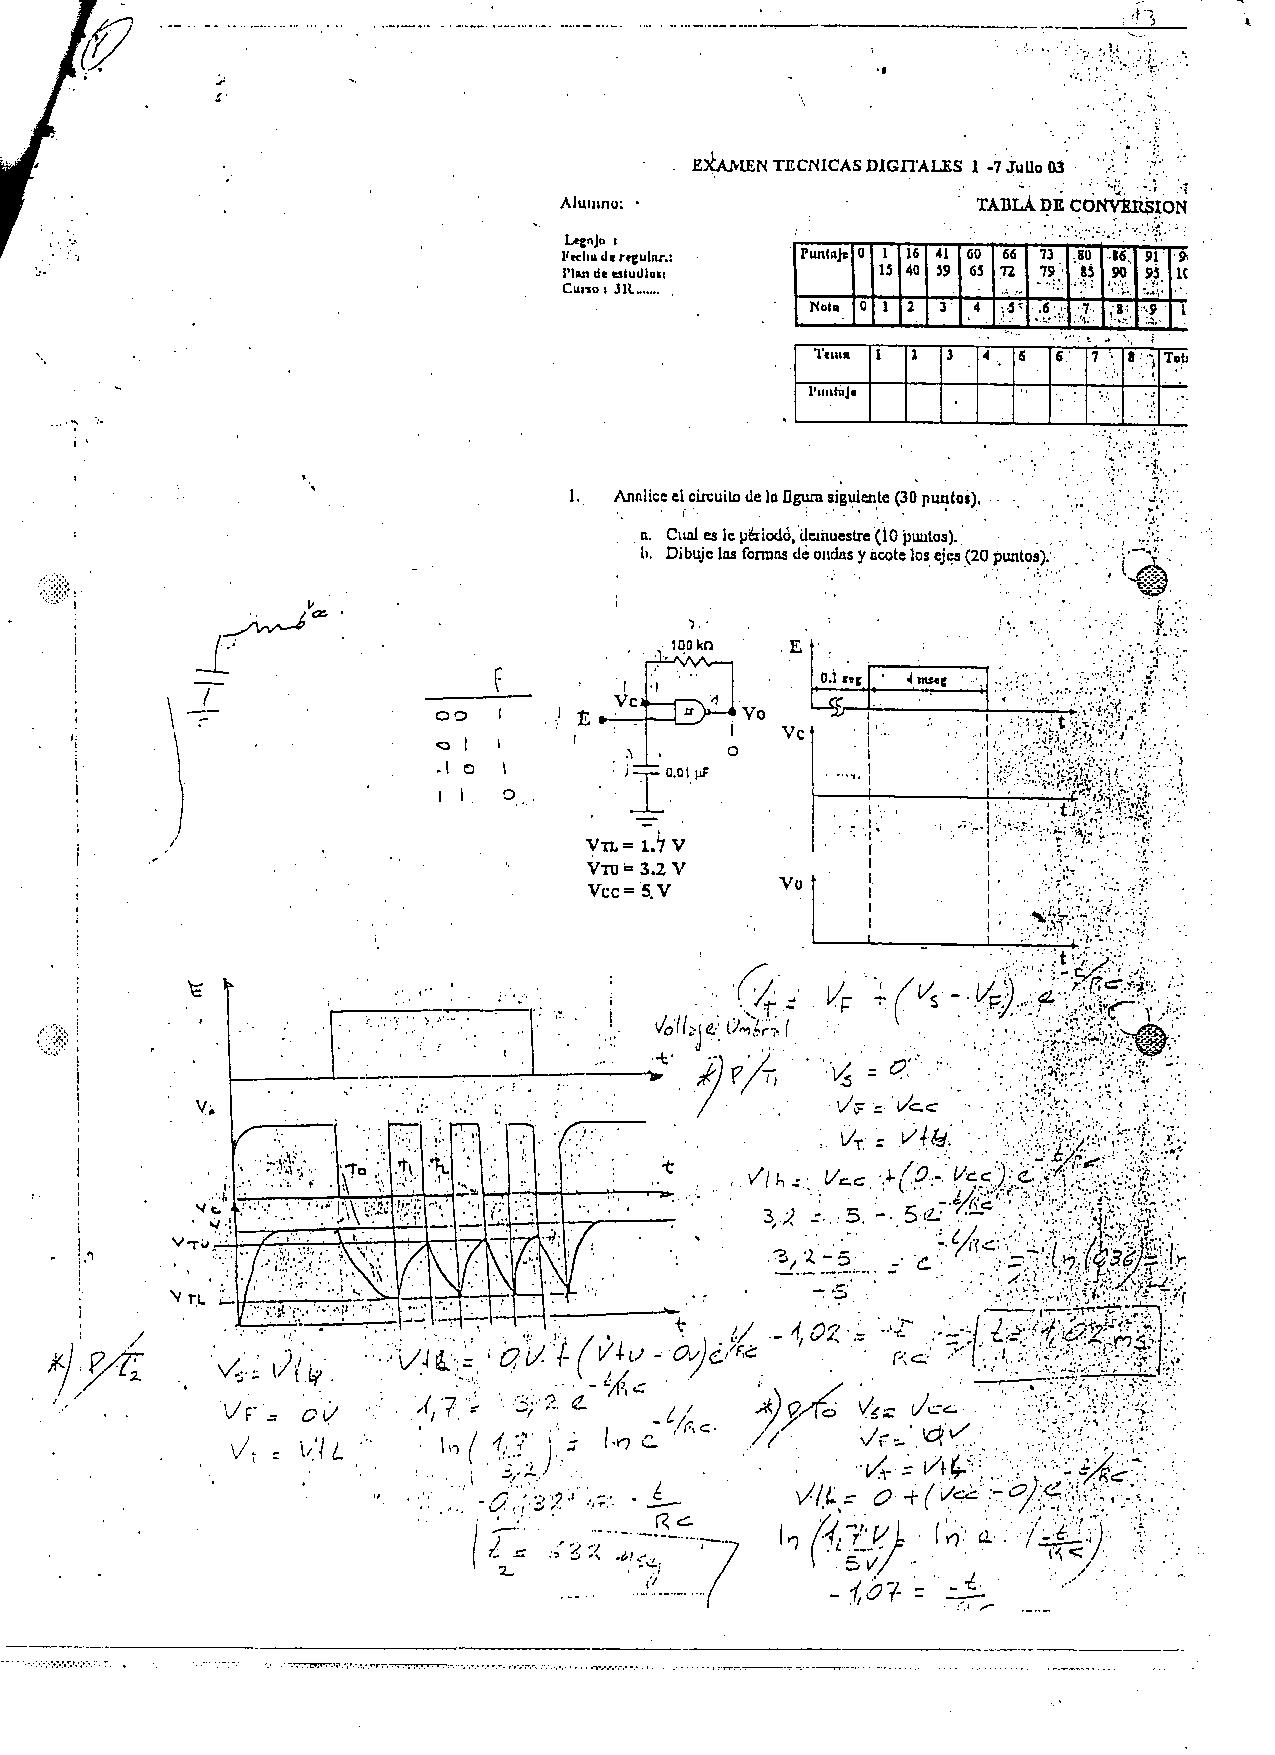 EXAMEN TECNICAS DIGITALES 1 -7 Julio 03
Alumno:
TABLA DE CONVERSION
Legajo :
Fecha de regular.:
Plan de estudios:
Curso : 3R.......
Puntaje 0 1 16 41 60 66 73 80 86 91
15 40 59 65 72 79 85 90 95
Nota 0 1 2 3 4 5 6 7 8 9 1
Tema 1 2 3 4 5 6 7 8 Tot
Puntaje
1. Analice el circuito de la figura siguiente (30 puntos).
a. Cual es le périodo, demuestre (10 puntos).
b. Dibuje las formas de ondas y acote los ejes (20 puntos).
Vcc
F
0 0 1
0 1 1
1 0 1
1 1 0
100 kΩ
Vc
E
Vo
1
0
0.01 µF
VTL = 1.7 V
VTU = 3.2 V
VCC = 5 V
E
0.1 seg 4 mseg
t
Vc
t
Vo
t
E
t
Vo
To T1 T2
t
Vc
VTU
VTL
t
VT = VF + (VS - VF) e -t/RC
Voltaje Umbral
*) P/T1 VS = 0
VF = Vcc
VT = Vth
Vth = Vcc + (0 - Vcc) e -t/RC
3,2 = 5 - 5e -t/RC
3,2 - 5 / -5 = e -t/RC
ln (0,36) = ln
-1,02 = -t/RC = t = 1,02 ms
*) P/T2 VS = Vth
VF = 0V
VT = VtL
VtL = 0V + (Vtu - 0V) e -t/RC
1,7 = 3,2 e -t/RC
ln (1,7/3,2) = ln e -t/RC
-0,632 = -t/RC
T2 = 632 µseg
*) P/To VS = Vcc
VF = 0V
VT = VtL
VtL = 0 + (Vcc - 0) e -t/RC
ln (1,7V/5V) = ln e (-t/RC)
-1,07 = -t/RC